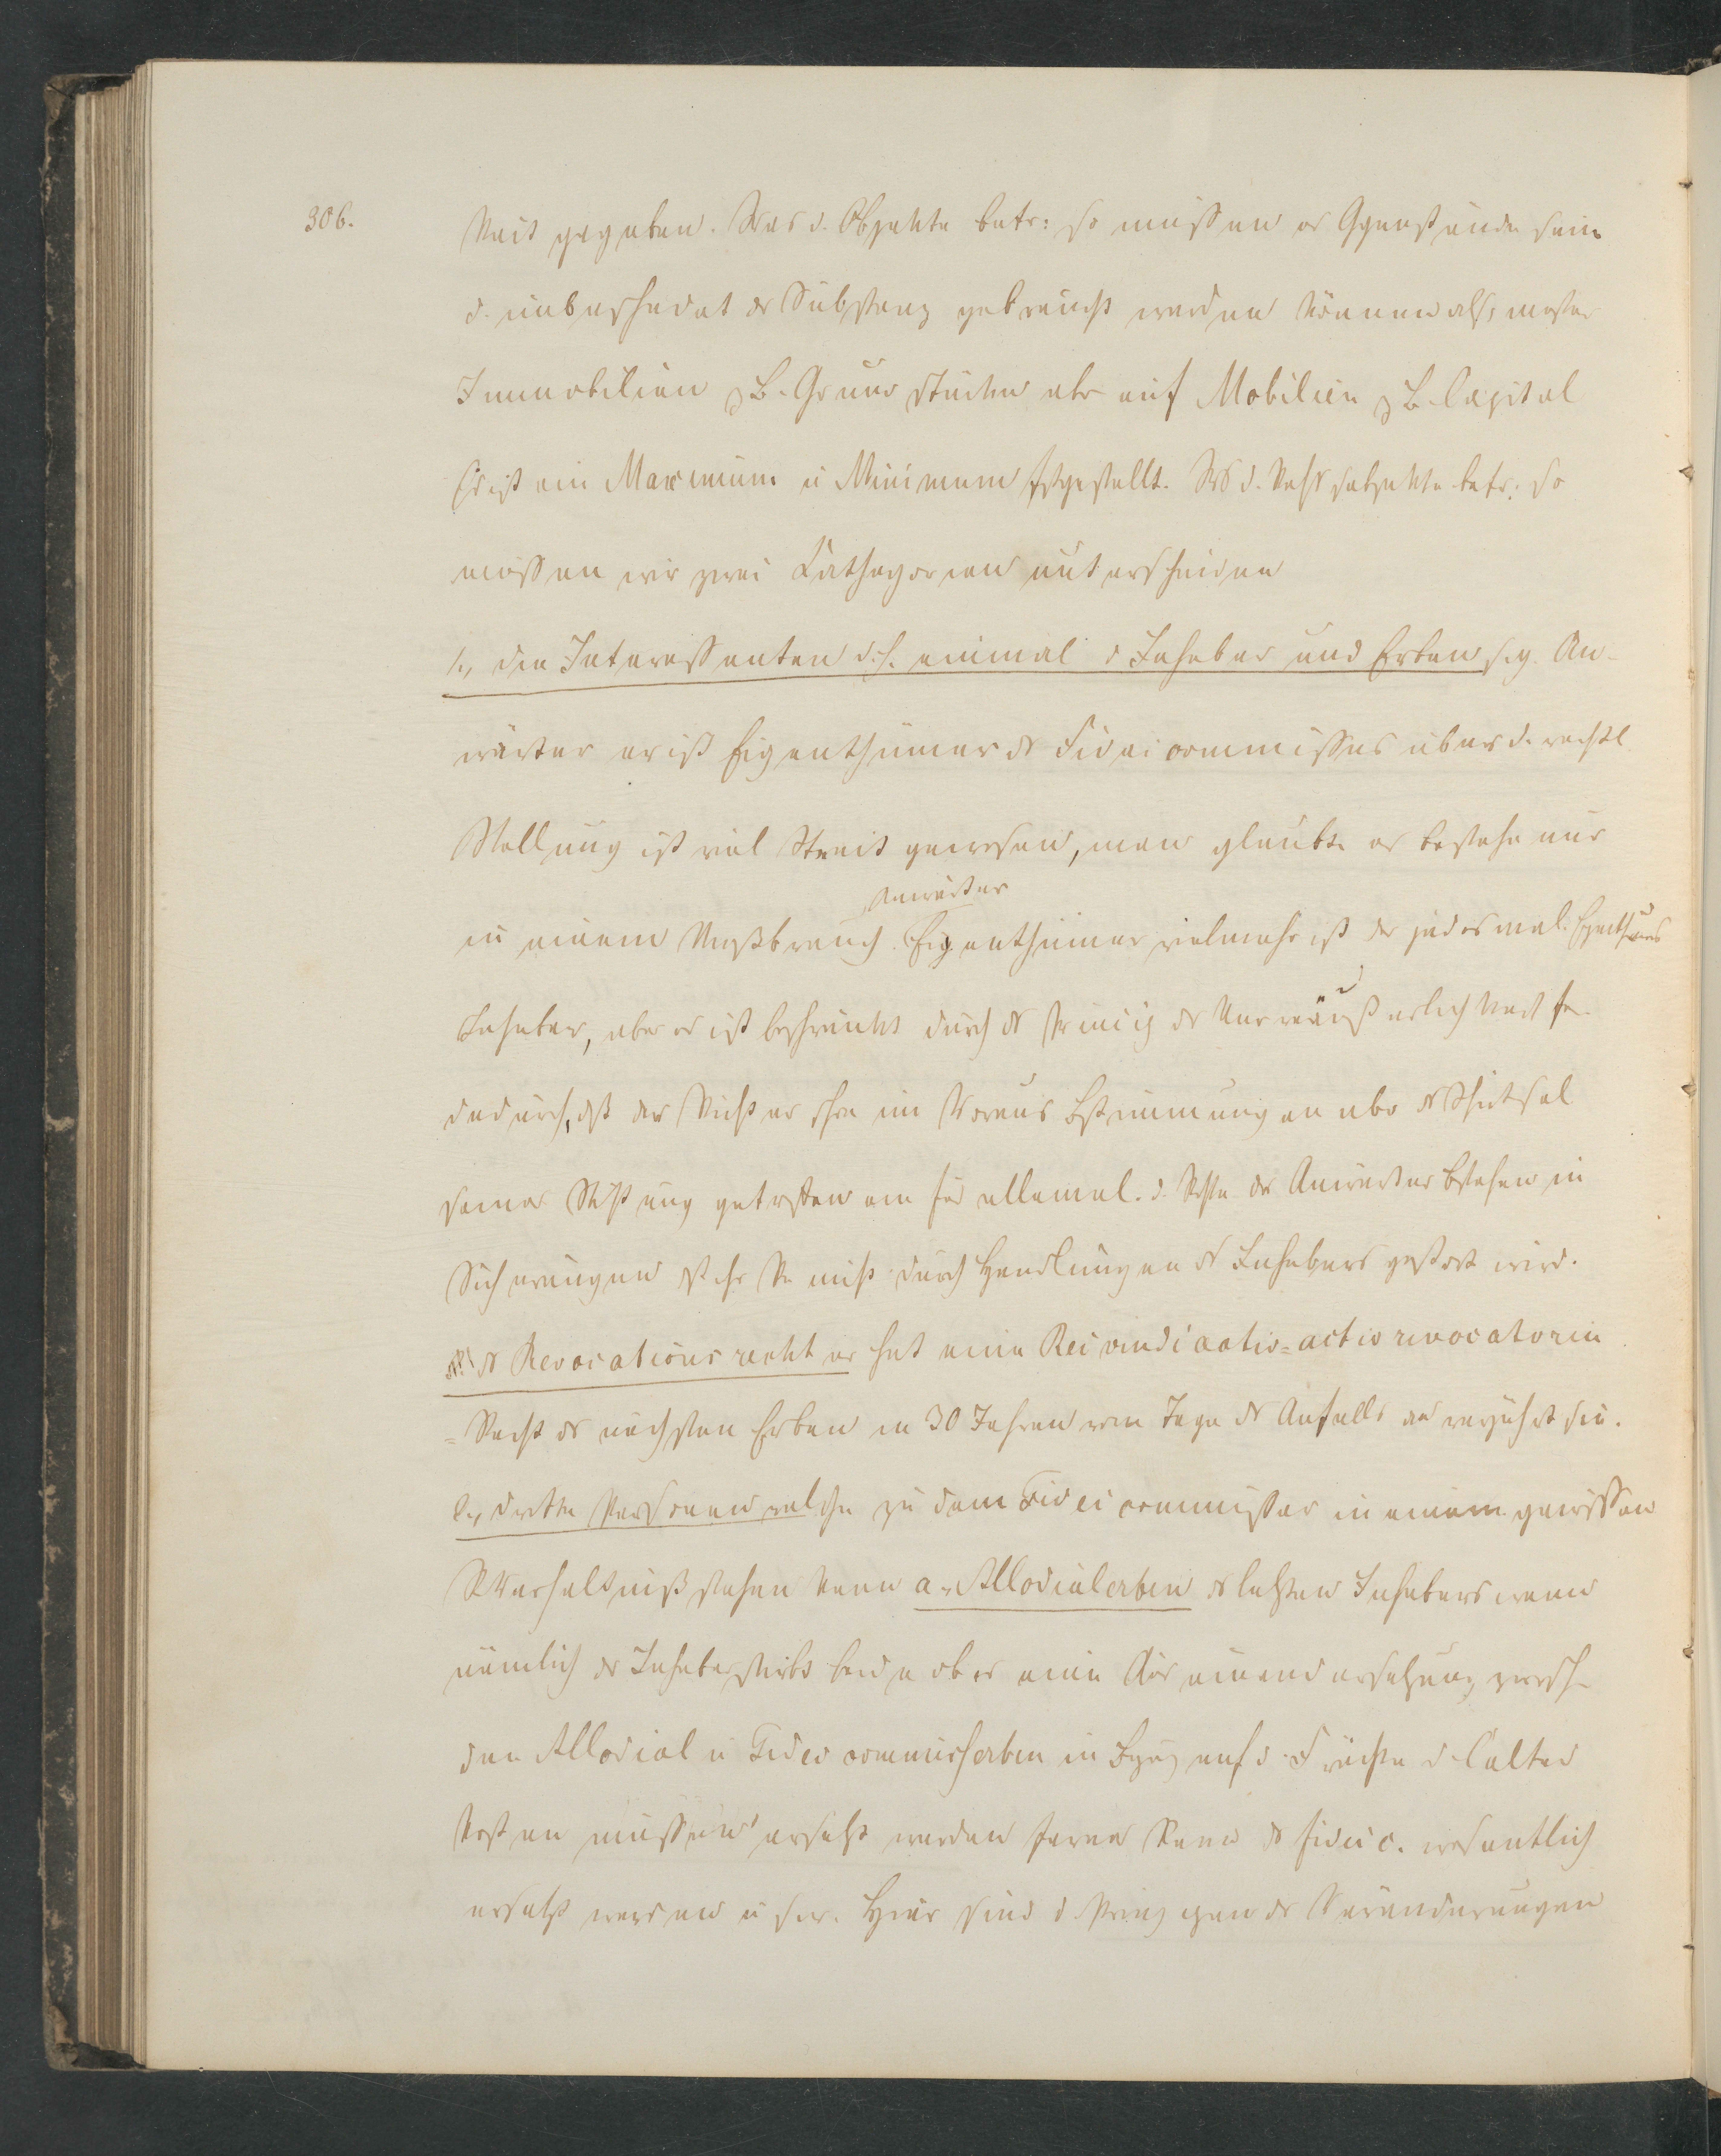 306.
keit gegeben. Was d. Objekte betr: so müssen es Ggenstände sein
d. unbeschadet dr Substanz gebraucht werden können also meistens
Immobilien z B. Grundstücken abr auf Mobilien z B. Capital
Es ist ein Maximum u Minimum fstgestellt. Ws d. Rechtssubjekte betr: so
müssen wir zwei Cathegorien unterscheiden
1., die Interessenten d. h. einmal d Inhaber und Erben sog. An-
wärter er ist Eigenthümer ds Fideicommisses über d. rechtl.
Stellung ist viel Streit gewesen, man glaubte es bestehe nur
Anwärter
in einem Nießbrauch. Eigenthümer vielmehr ist der jedesmal. Eigenthümer
Inhaber, aber er ist beschränkt durch ds Princip dr Unveräußerlichkeit fr.
dadurch, dß der Stifter schon im Voraus Bstimmungen über ds Schicksal
seiner Stiftung getroffen ein für allemal. d. Rechte der Anwärter bstehen in
Sicherungen dß ihr Re nicht durch Handlungen ds Inhabers gestört wird.
ds Revocationsrecht er hat eine Rei vindicatio = actio revocatoria
= Recht ds nächsten Erben in 30 Jahren vom Tage ds Anfalls an verjährt sie.
2., dritte Personen welche zu dem Fideicommisser in einem gewissen
RVerhältniß stehen kann a. Allodialerben ds letzten Inhabers wenn
nämlich dr Inhaber stirbt beide ob er eine Auseinandersetzung zwisch.
den Allodial u Fideicommißerben in Bzug auf d. Früchte d. Cultur
kosten müssen ersetzt werden ferner kann ds fideic. wesentlich
ersetzt werden u s w. Hier sind d. Prinzipien dr Veränderungen